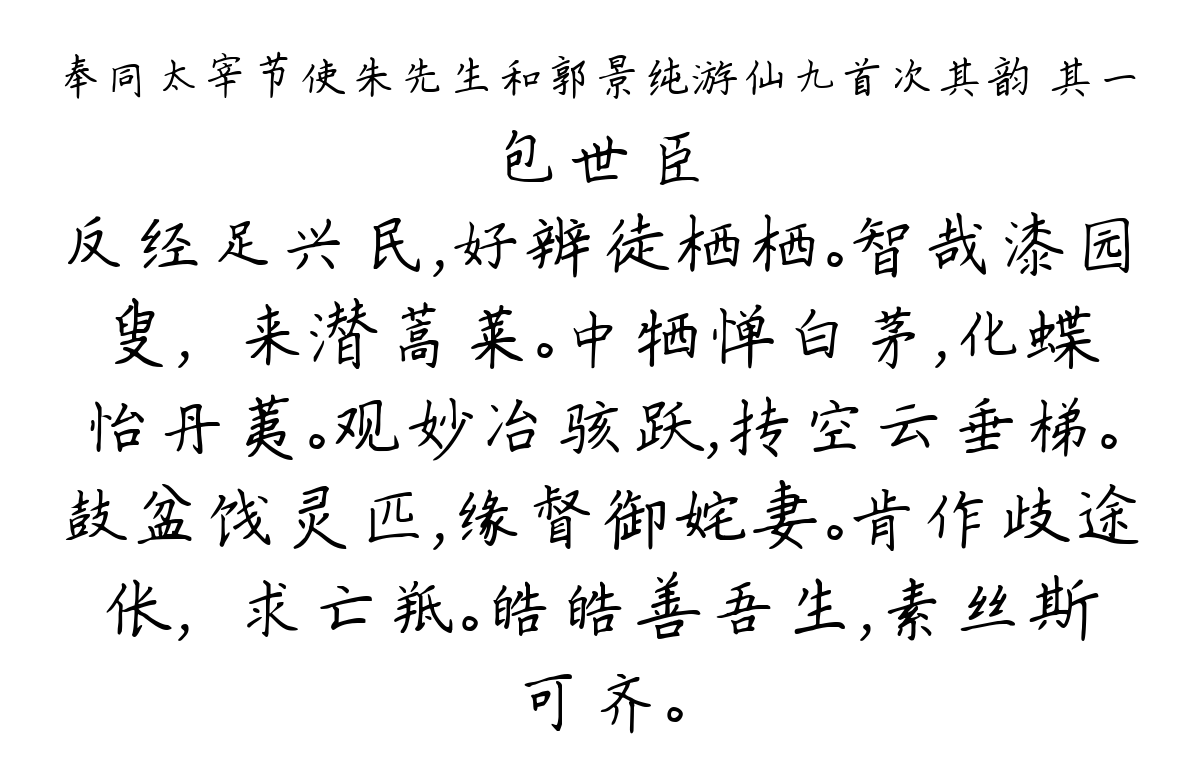 奉同太宰节使朱先生和郭景纯游仙九首次其韵 其一
包世臣
反经足兴民,好辨徒栖栖。智哉漆园
叟，来潜蒿莱。中牺惮白茅,化蝶
怡丹荑。观妙冶骇跃,抟空云垂梯。
鼓盆饯灵匹,缘督御姹妻。肯作歧途
伥，求亡羝。皓皓善吾生,素丝斯
可齐。